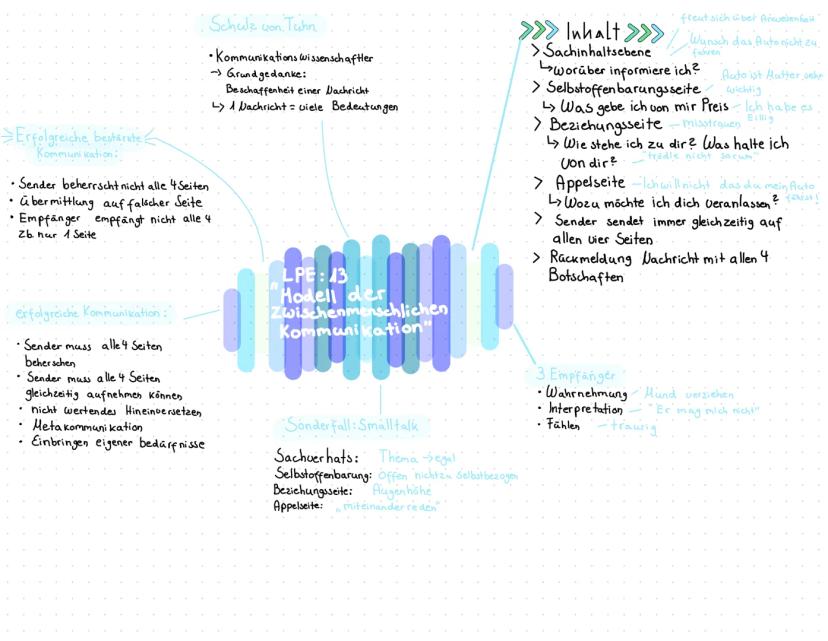 Schulz von Tuhn
• Kommunikationswissenschaftler
-> Grundgedanke:
Beschaffenheit einer Nachricht
↳ 1 Nachricht = viele Bedeutungen
Erfolgreiche, bestärkte
Kommunikation:
• Sender beherrscht nicht alle 4 Seiten
• Übermittlung auf falscher Seite
• Empfänger empfängt nicht alle 4
zb. nur 1 Seite
erfolgreiche Kommunikation:
• Sender muss alle 4 Seiten
beherschen
• Sender muss alle 4 Seiten
gleichzeitig aufnehmen können
• nicht wertendes Hineinversetzen
• Metakommunikation
• Einbringen eigener bedürfnisse
LPE: 13
"Modell der
Zwischenmenschlichen
Kommunikation"
Sonderfall: Smalltalk
Sachverhats: Thema -> egal
Selbstoffenbarung: Offen nicht zu selbstbezogen
Beziehungsseite: Augenhöhe
Appelseite: "miteinander reden"
Inhalt
> Sachinhaltsebene
freut sich über Anwesenheit
Wunsch das Auto nicht zu
fahren
↳ worüber informiere ich?
> Selbstoffenbarungsseite
Auto ist Mutter sehr
wichtig
↳ Was gebe ich von mir Preis - Ich habe es
Eilig
> Beziehungsseite - misstrauen
↳ Wie stehe ich zu dir? Was halte ich
von dir? - "trödle nicht so rum"
> Appelseite - Ich will nicht das du mein Auto
fährst!
↳ Wozu möchte ich dich veranlassen?
> Sender sendet immer gleichzeitig auf
allen vier Seiten
> Rückmeldung Nachricht mit allen 4
Botschaften
3 Empfänger
• Wahrnehmung - Mund verziehen
• Interpretation - "Er mag mich nicht"
• Fühlen - traurig